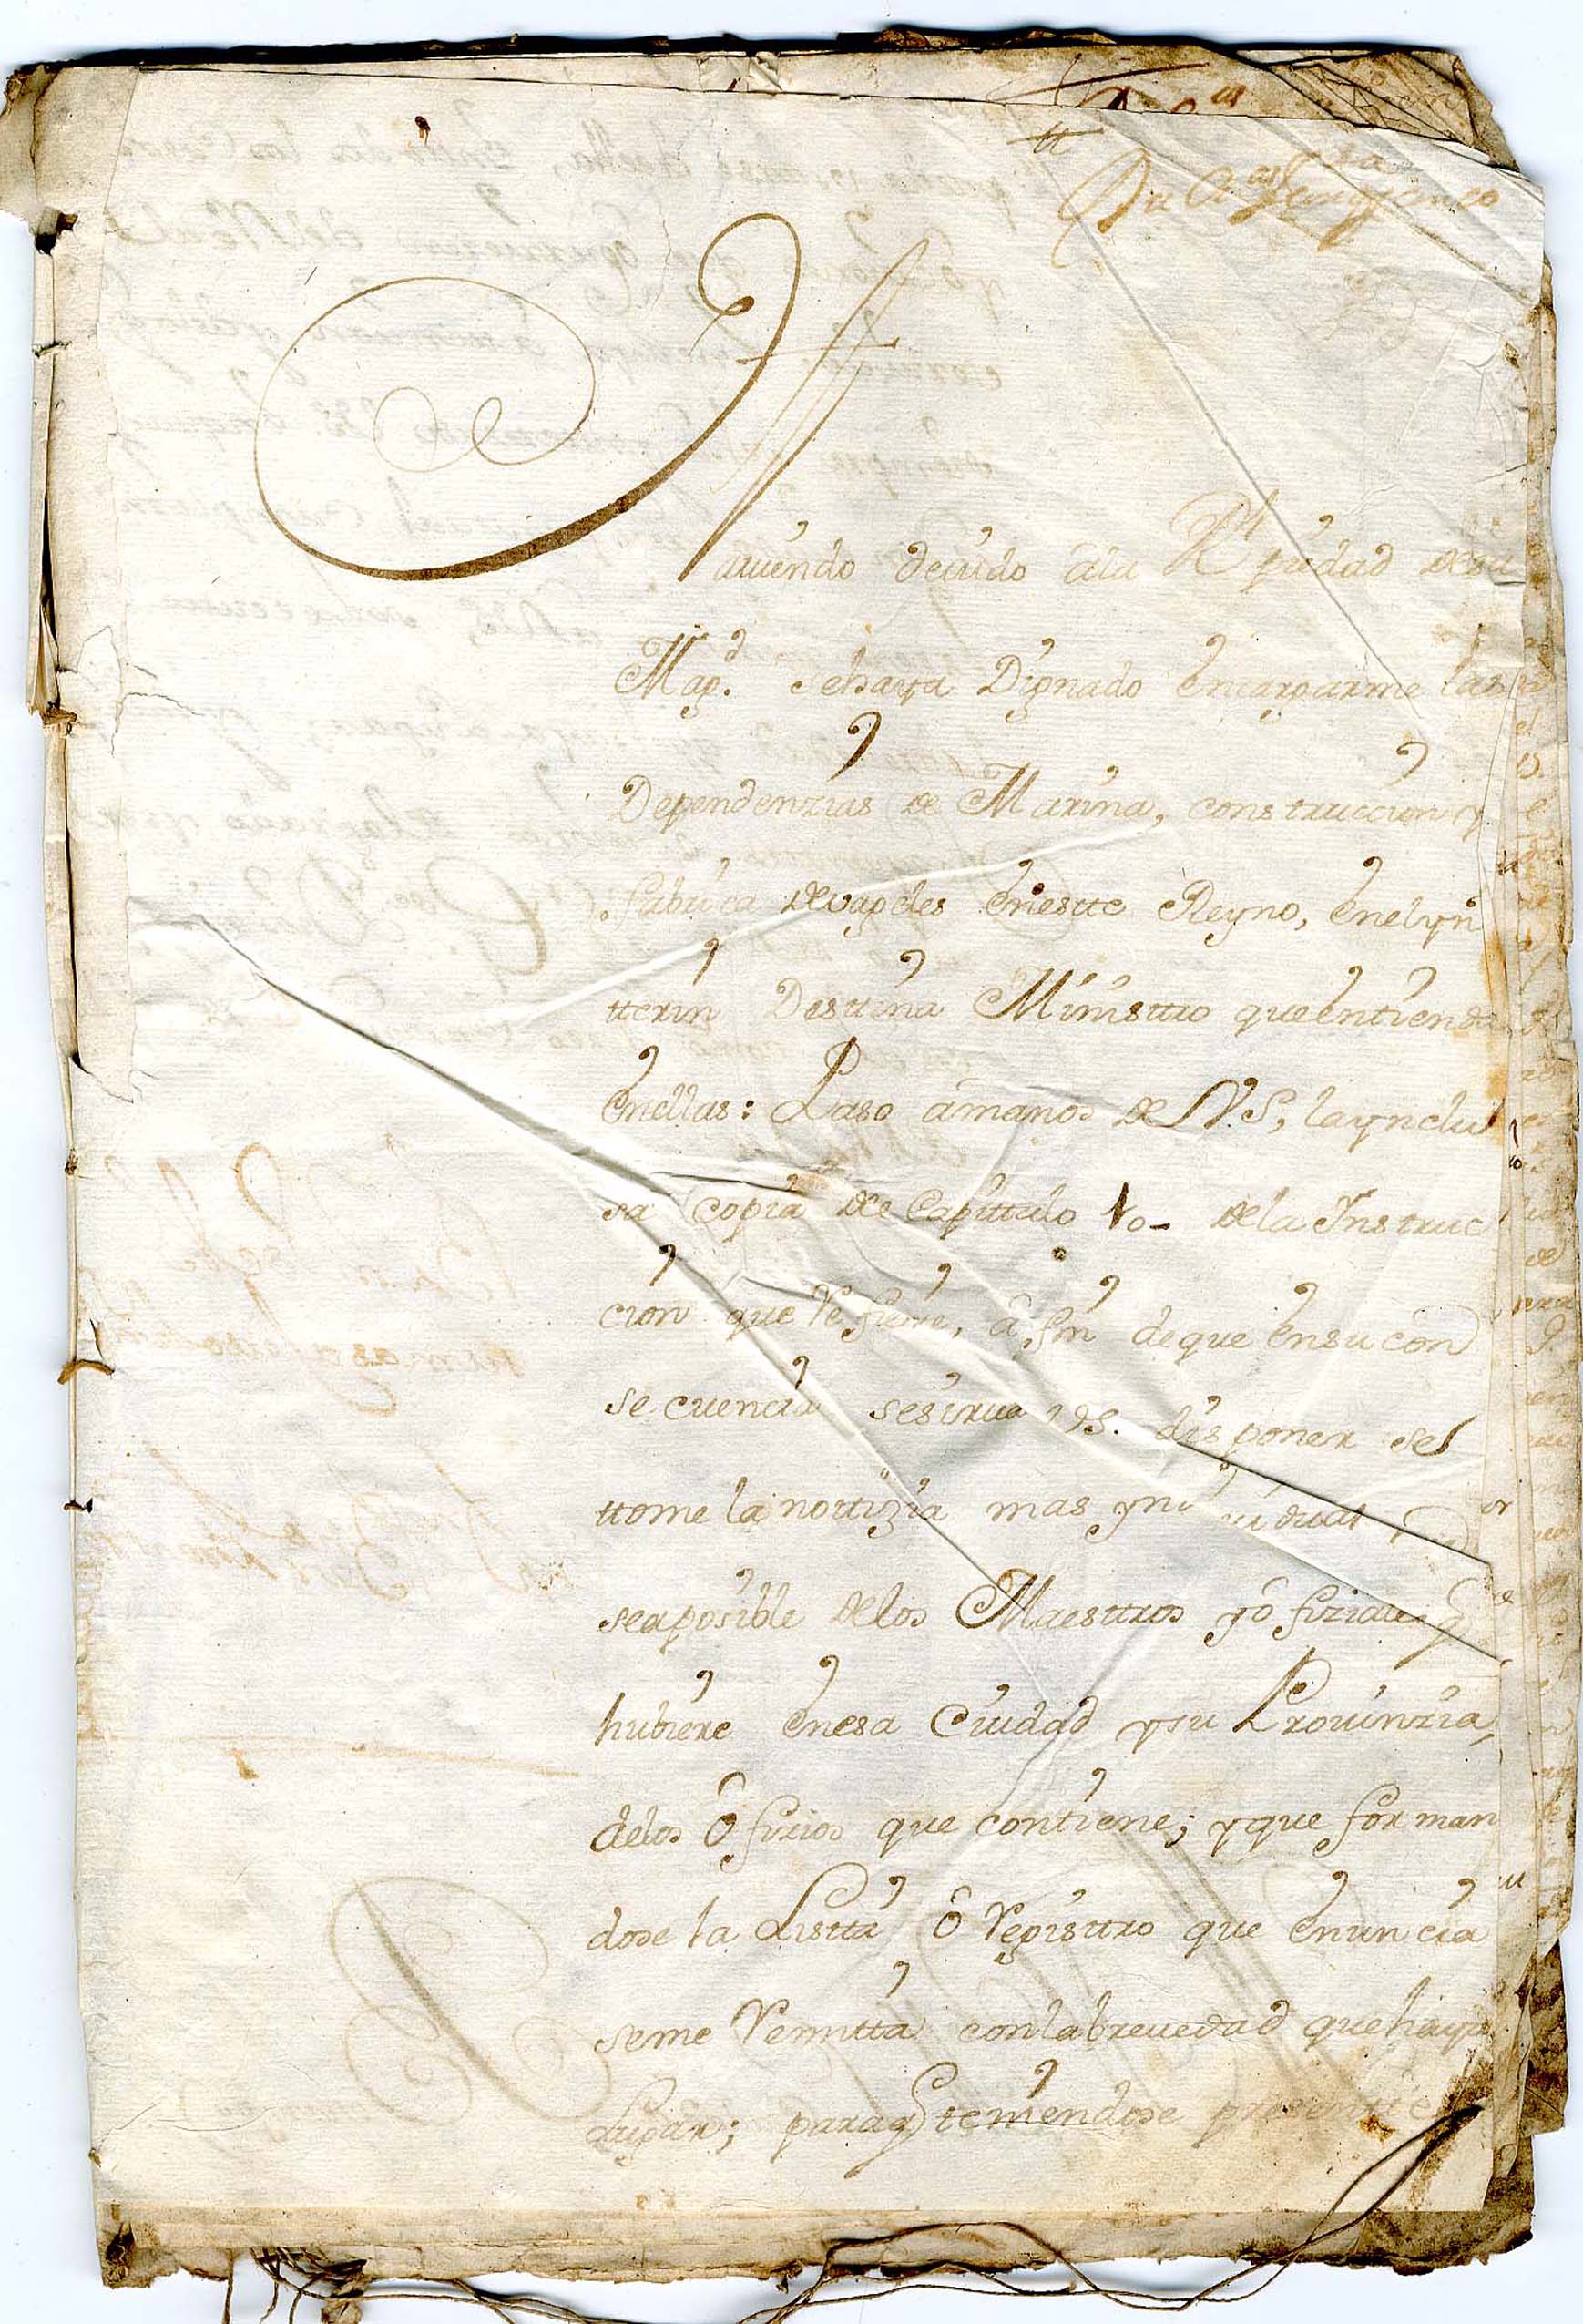 Hauiendo deuido âla Rl piedad desu
Magd. sehaya Dignado encargarme las
Dependenzias de Marina, construccion y
fabrica devageles enestte Reyno, enelyn
tterin Desttina Ministtro queentienda
enellas: Paso âmanos de V.S, laynclu
sa copia del Capittulo 10- dela Instruc
cion que Refiere, â fin deque ensu con
secuencia sesirua VS. disponer se
ttome la nottizia mas yndiuidual
seaposible delos Maesttros yôfiziales q
hubiere enesa Ciudad ysu Prouinzia,
delos ôfizios que contiene; yque forman
dose la Listta ô Registtro que enuncia
seme Remitta conlabreuedad quehaya
Lugar; paraq teniendose presentte